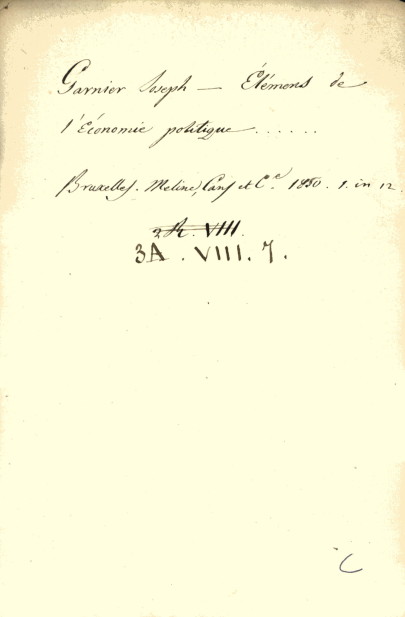 Garnier Joseph — Élémens de
l'Économie politique......
Bruxelles. Meline, Cans et C.e 1850. 1. in 12
2A. VIII.
3A. VIII. 7.
C